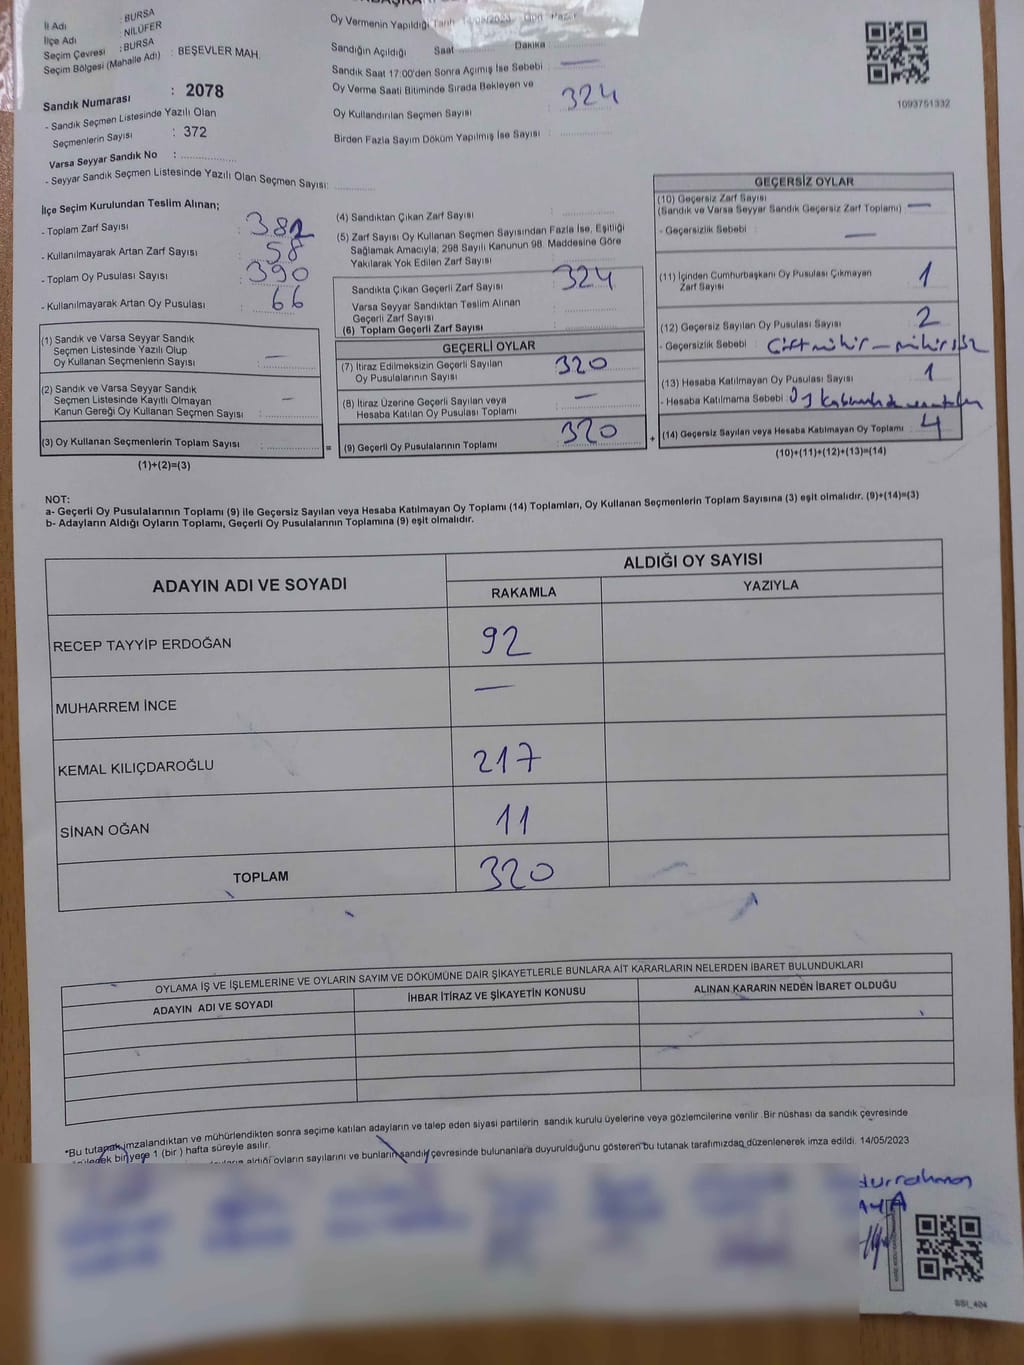 İl Adı : BURSA
İlçe Adı : NİLÜFER
Seçim Çevresi : BURSA
Seçim Bölgesi (Mahalle Adı) : BEŞEVLER MAH.
Sandık Numarası : 2078
- Sandık Seçmen Listesinde Yazılı Olan
Seçmenlerin Sayısı : 372
Varsa Seyyar Sandık No :
- Seyyar Sandık Seçmen Listesinde Yazılı Olan Seçmen Sayısı:
Oy Vermenin Yapıldığı Tarih 14/05/2023 Gün Pazar
Sandığın Açıldığı Saat Dakika :
Sandık Saat 17:00'den Sonra Açımış İse Sebebi : —
Oy Verme Saati Bitiminde Sırada Bekleyen ve
Oy Kullandırılan Seçmen Sayısı : 324
Birden Fazla Sayım Döküm Yapılmış İse Sayısı :
1093751332
İlçe Seçim Kurulundan Teslim Alınan;
- Toplam Zarf Sayısı : 382
- Kullanılmayarak Artan Zarf Sayısı : 58
- Toplam Oy Pusulası Sayısı : 390
- Kullanılmayarak Artan Oy Pusulası : 66
(1) Sandık ve Varsa Seyyar Sandık
Seçmen Listesinde Yazılı Olup
Oy Kullanan Seçmenlerin Sayısı : —
(2) Sandık ve Varsa Seyyar Sandık
Seçmen Listesinde Kayıtlı Olmayan
Kanun Gereği Oy Kullanan Seçmen Sayısı : —
(3) Oy Kullanan Seçmenlerin Toplam Sayısı : =
(1)+(2)=(3)
(4) Sandıktan Çıkan Zarf Sayısı :
(5) Zarf Sayısı Oy Kullanan Seçmen Sayısından Fazla İse, Eşitliği
Sağlamak Amacıyla; 298 Sayılı Kanunun 98. Maddesine Göre
Yakılarak Yok Edilen Zarf Sayısı :
Sandıkta Çıkan Geçerli Zarf Sayısı : 324
Varsa Seyyar Sandıktan Teslim Alınan
Geçerli Zarf Sayısı :
(6) Toplam Geçerli Zarf Sayısı :
GEÇERLİ OYLAR
(7) İtiraz Edilmeksizin Geçerli Sayılan
Oy Pusulalarının Sayısı : 320
(8) İtiraz Üzerine Geçerli Sayılan veya
Hesaba Katılan Oy Pusulası Toplamı : —
(9) Geçerli Oy Pusulalarının Toplamı : 320 +
GEÇERSİZ OYLAR
(10) Geçersiz Zarf Sayısı
(Sandık ve Varsa Seyyar Sandık Geçersiz Zarf Toplamı) : —
- Geçersizlik Sebebi : —
(11) İçinden Cumhurbaşkanı Oy Pusulası Çıkmayan
Zarf Sayısı : 1
(12) Geçersiz Sayılan Oy Pusulası Sayısı : 2
- Geçersizlik Sebebi : Çift mühür – mühürsüz
(13) Hesaba Katılmayan Oy Pusulası Sayısı : 1
- Hesaba Katılmama Sebebi : Oy
(14) Geçersiz Sayılan veya Hesaba Katılmayan Oy Toplamı : 4
(10)+(11)+(12)+(13)=(14)
NOT:
a- Geçerli Oy Pusulalarının Toplamı (9) ile Geçersiz Sayılan veya Hesaba Katılmayan Oy Toplamı (14) Toplamları, Oy Kullanan Seçmenlerin Toplam Sayısına (3) eşit olmalıdır. (9)+(14)=(3)
b- Adayların Aldığı Oyların Toplamı, Geçerli Oy Pusulalarının Toplamına (9) eşit olmalıdır.
ADAYIN ADI VE SOYADI ALDIĞI OY SAYISI
RAKAMLA YAZIYLA
RECEP TAYYİP ERDOĞAN 92
MUHARREM İNCE —
KEMAL KILIÇDAROĞLU 217
SİNAN OĞAN 11
TOPLAM 320
OYLAMA İŞ VE İŞLEMLERİNE VE OYLARIN SAYIM VE DÖKÜMÜNE DAİR ŞİKAYETLERLE BUNLARA AİT KARARLARIN NELERDEN İBARET BULUNDUKLARI
ADAYIN ADI VE SOYADI İHBAR İTİRAZ VE ŞİKAYETİN KONUSU ALINAN KARARIN NEDEN İBARET OLDUĞU
*Bu tutanak imzalandıktan ve mühürlendikten sonra seçime katılan adayların ve talep eden siyasi partilerin sandık kurulu üyelerine veya gözlemcilerine verilir .Bir nüshası da sandık çevresinde
bir yere 1 (bir ) hafta süreyle asılır.
aldığı oyların sayılarını ve bunların sandık çevresinde bulunanlara duyurulduğunu gösteren bu tutanak tarafımızdan düzenlenerek imza edildi. 14/05/2023
durrahman
AYA
SSI_404